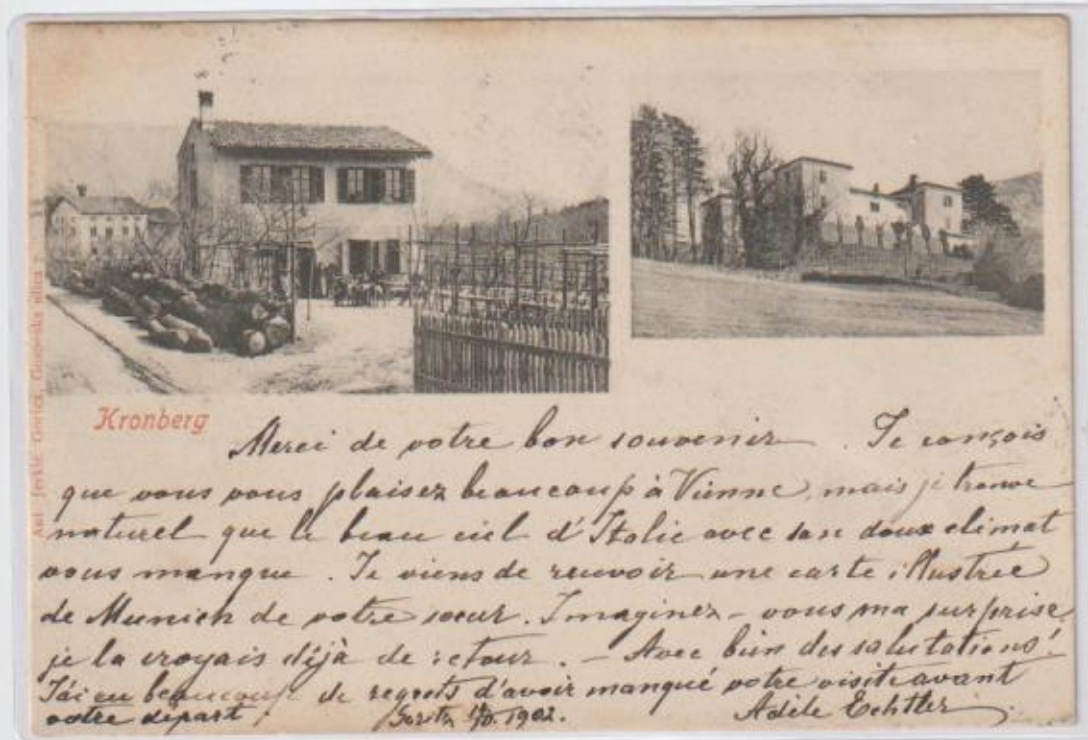 Kronberg
Merci de votre bon souvenir. Je conçois
que vous vous plaisez beaucoup à Vienne, mais je trouve
naturel que le beau ciel d'Italie avec son doux climat
vous manque. Je viens de recevoir une carte illustrée
de Munich de votre sœur. Imaginez-vous ma surprise,
je la croyais déjà de retour. – Avec bien des salutations!
J'ai eu beaucoup de regrets d'avoir manqué votre visite avant
votre départ. 1902.
Adèle Echtler
Ant. Jerkič Gorica, Gosposka ulica